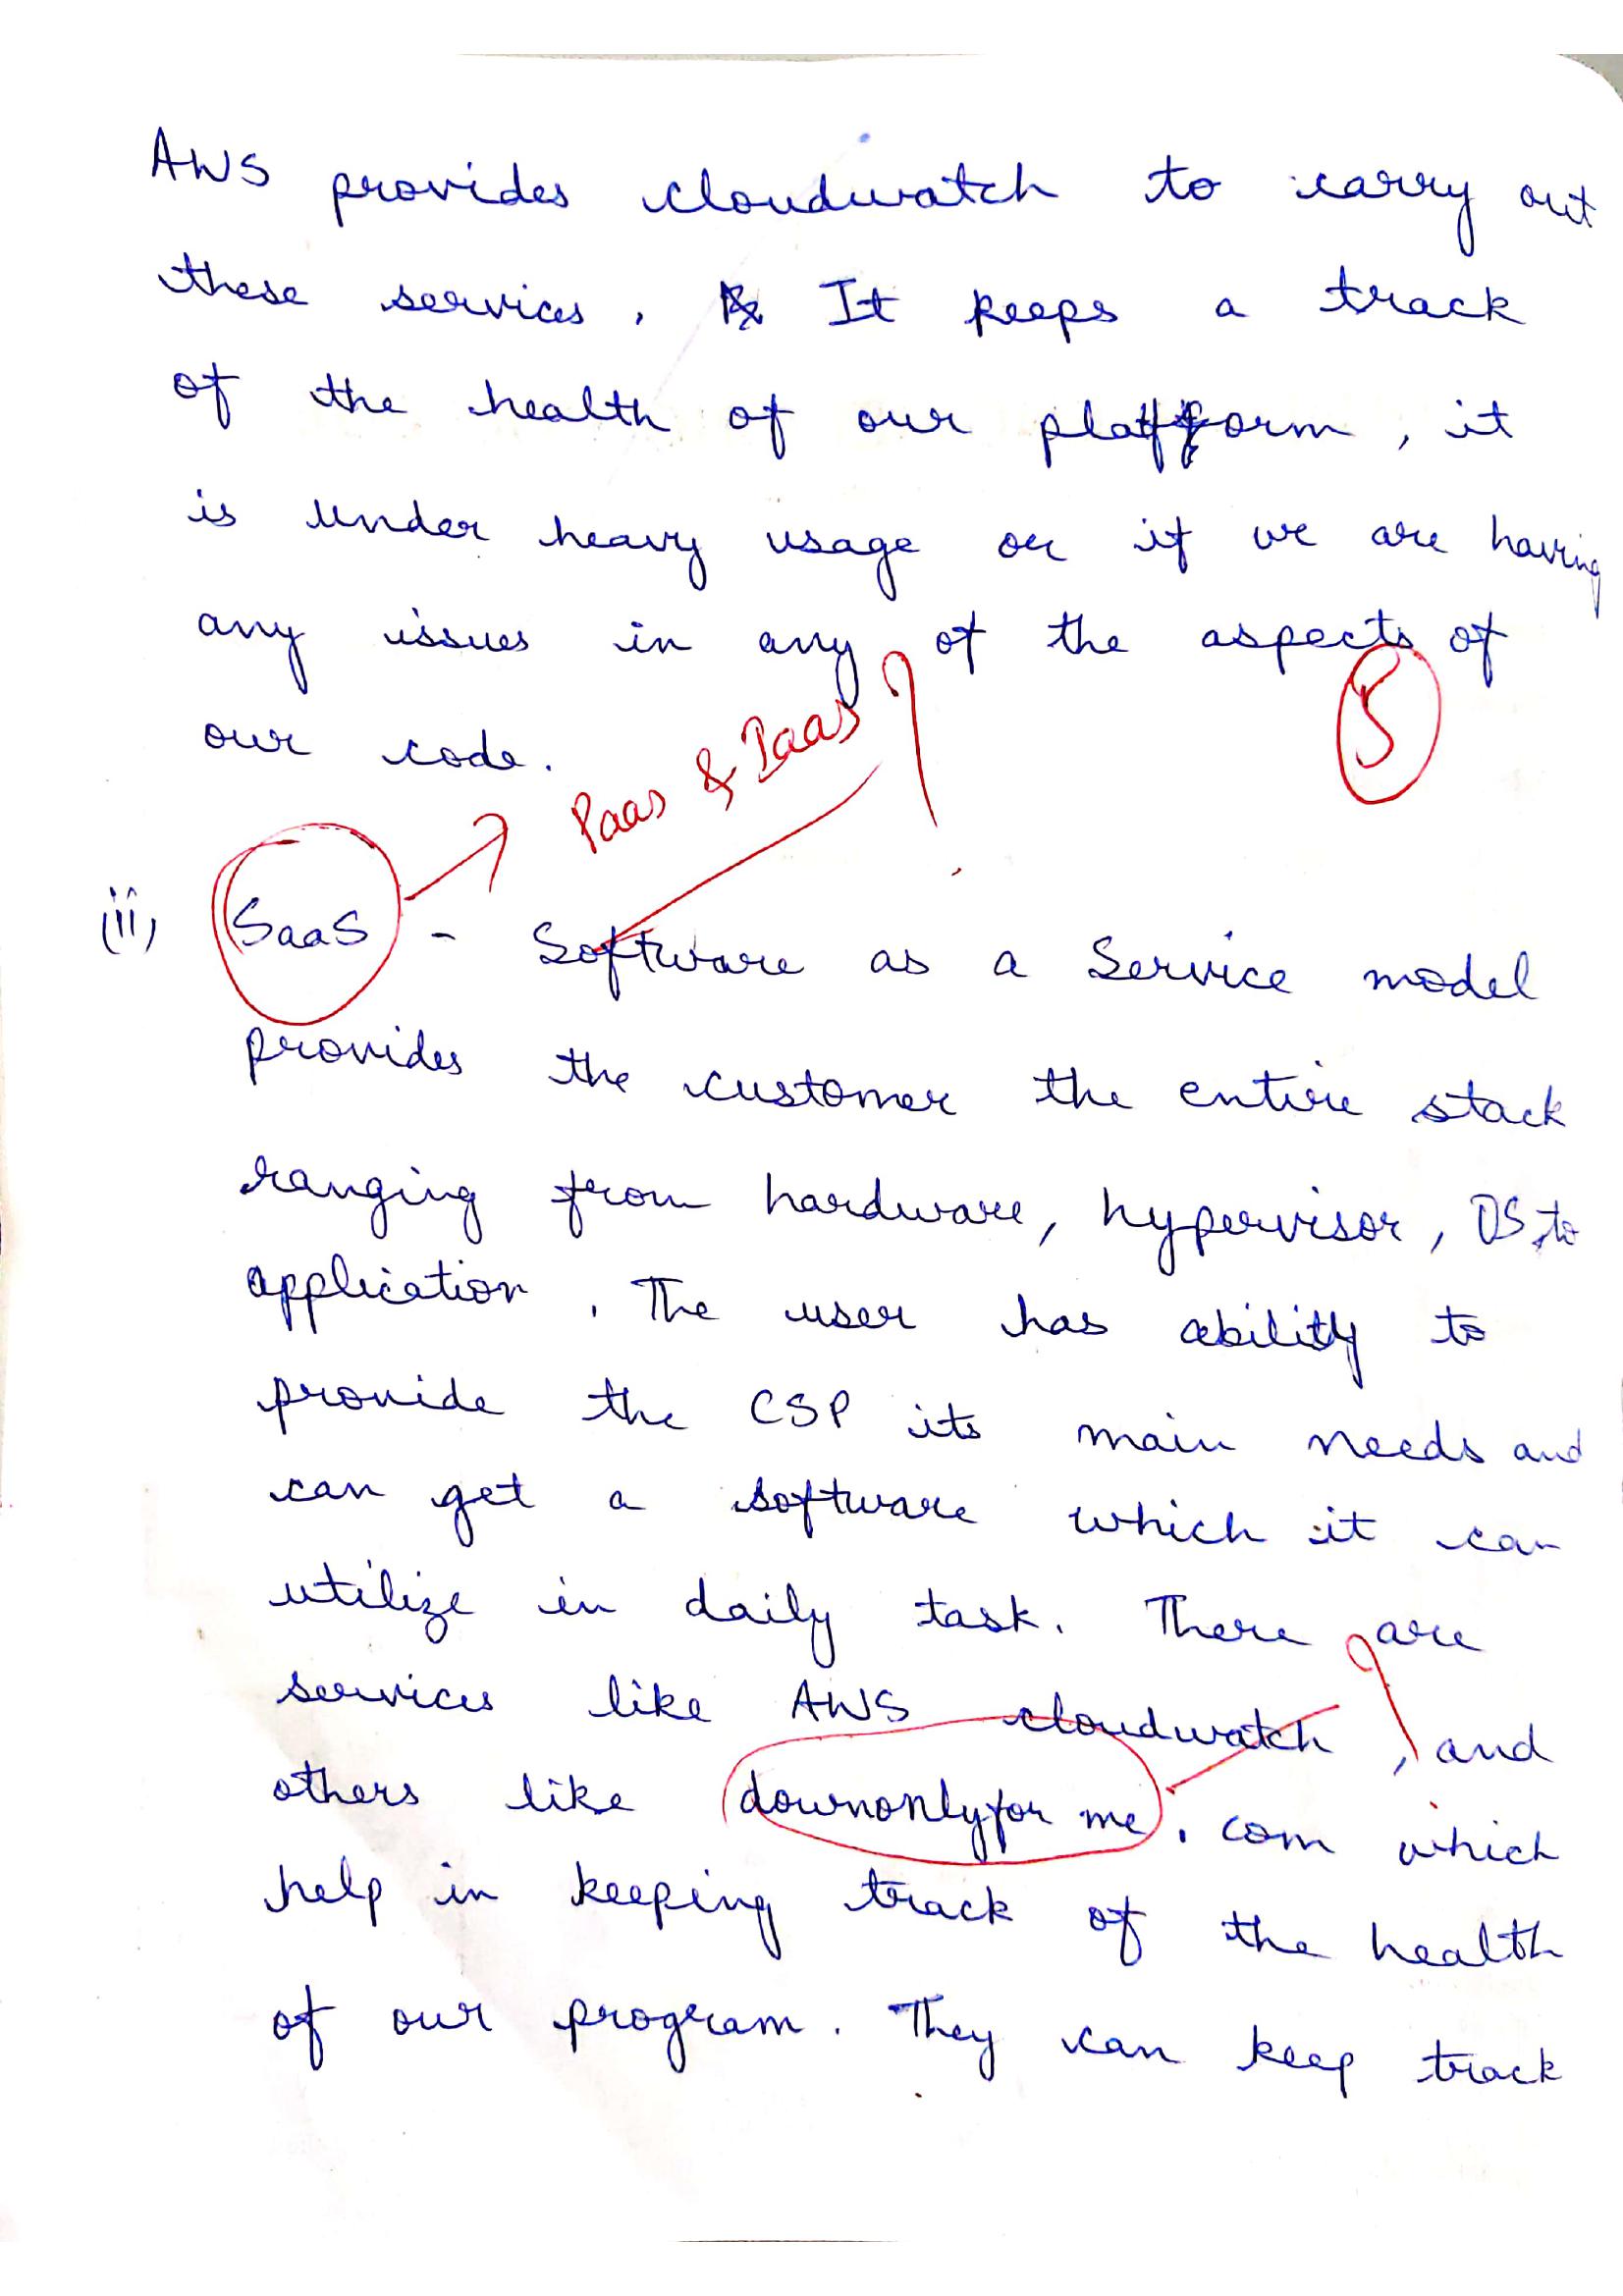 AWS provides cloudwatch to carry out
these services. It keeps a track
of the health of our platform, it
is under heavy usage or if we are having
any issues in any of the aspects of
5
our code.
Paas & Iaas
(ii) SaaS - Software as a Service model
provides the customer the entire stack
ranging from hardware, hypervisor, OS, to
application. The user has ability to
provide the CSP its main needs and
can get a software which it can
utilize in daily task. There are
services like AWS cloudwatch, and
others like downonlyfor me. com which
help in keeping track of the health
of our program. They can keep track